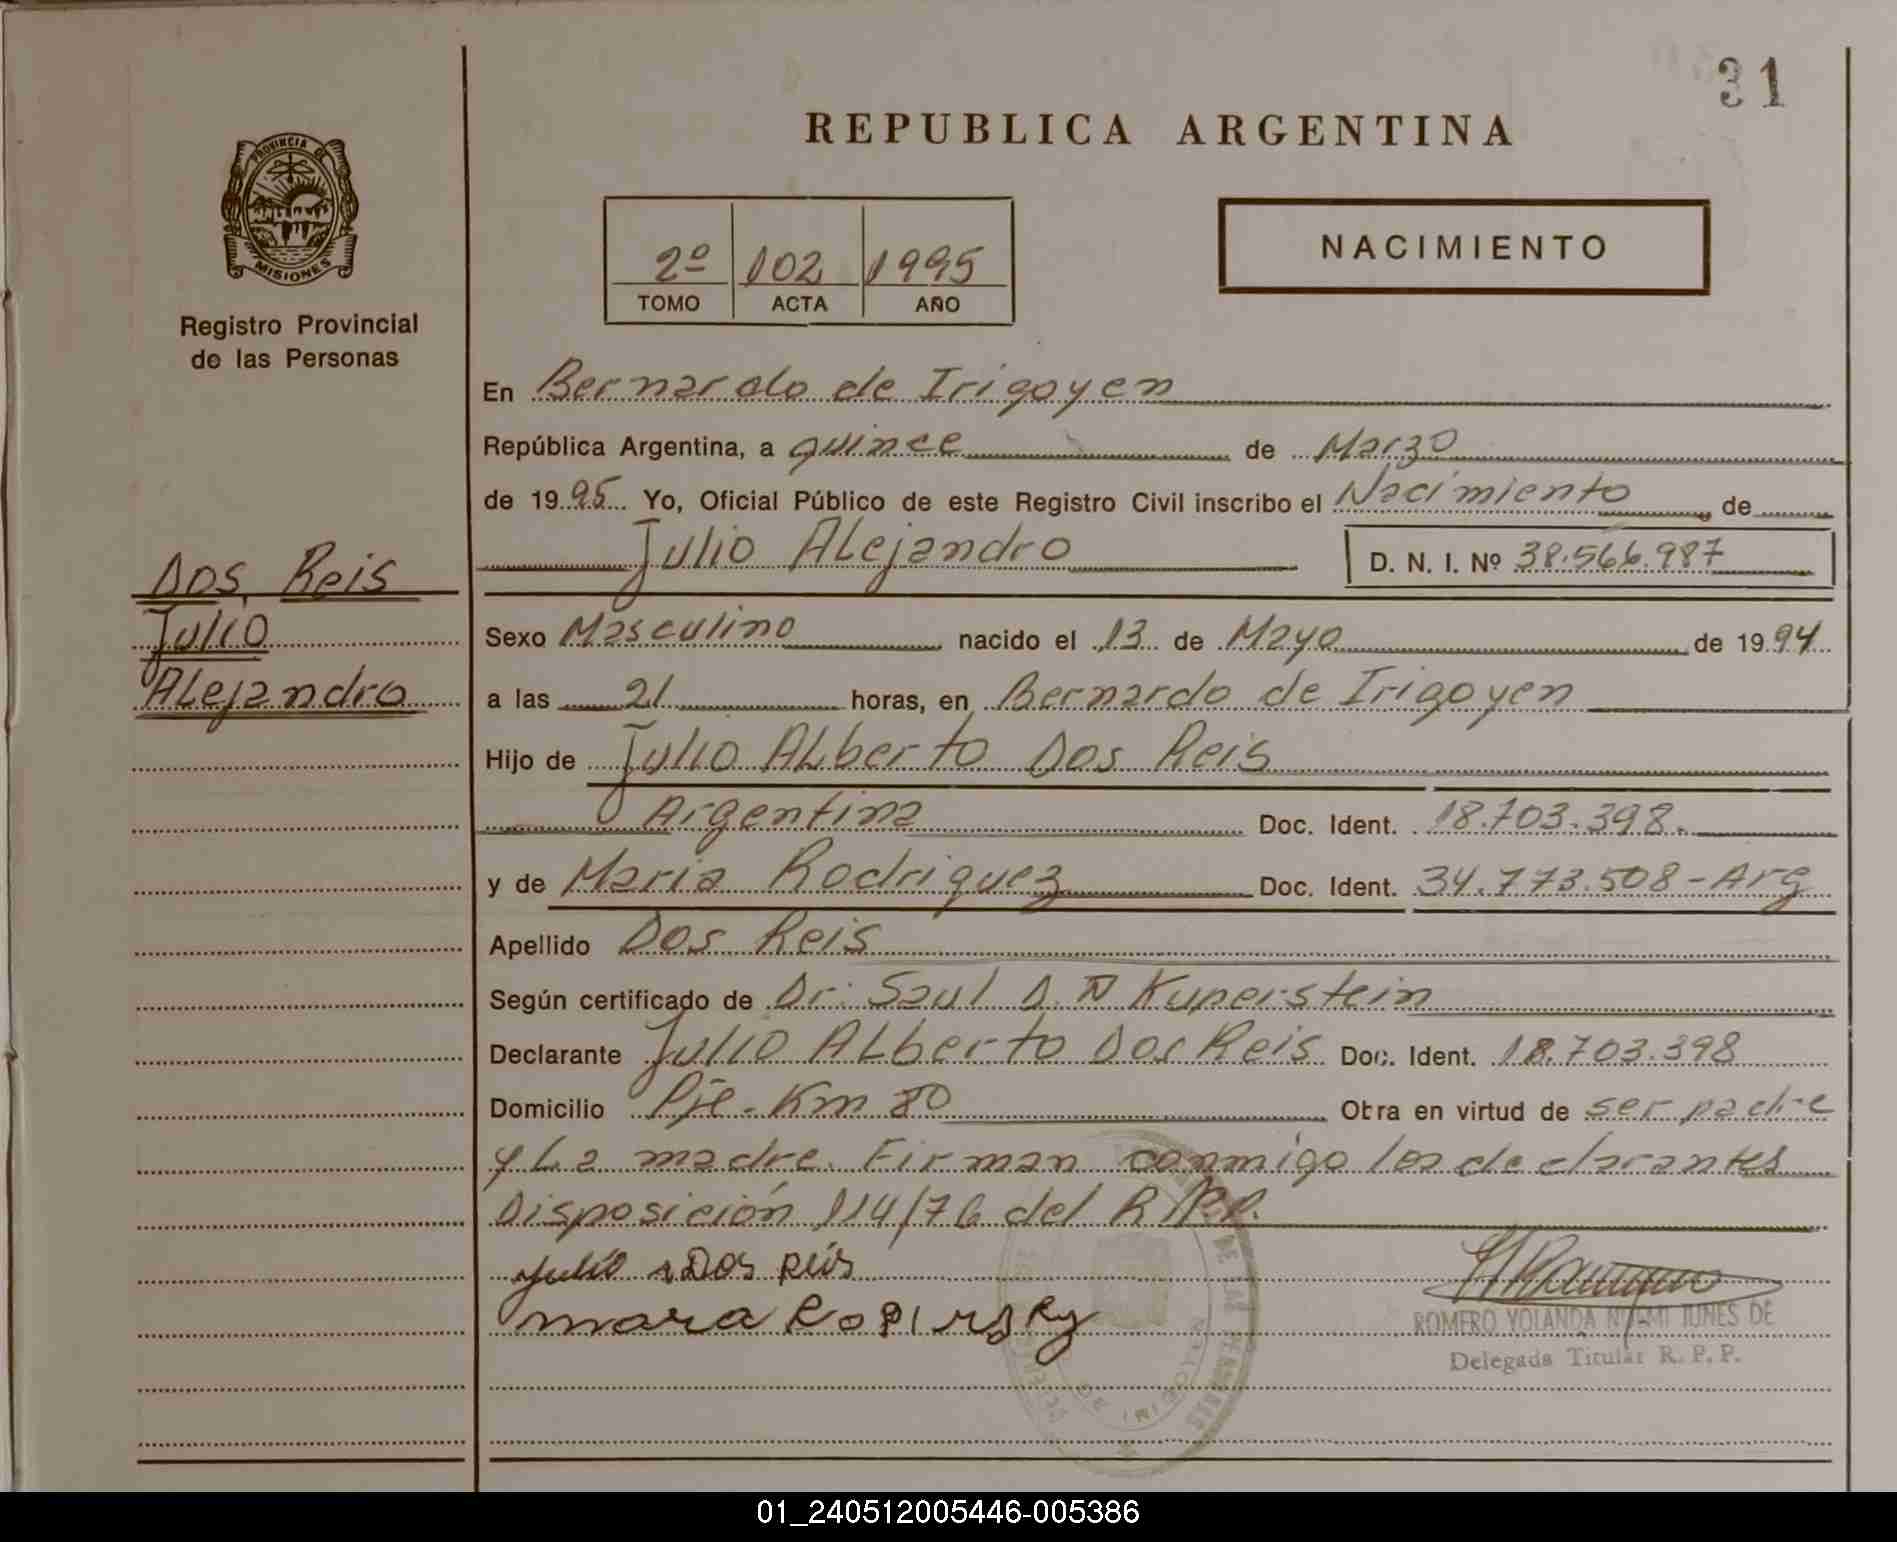 31
REPUBLICA ARGENTINA
PROVINCIA DE
MISIONES
Registro Provincial
de las Personas
2º 102 1995
TOMO ACTA AÑO
NACIMIENTO
En Bernardo de Irigoyen
República Argentina, a quince de Marzo
de 1995 Yo, Oficial Público de este Registro Civil inscribo el Nacimiento de
Julio Alejandro D. N. I. Nº 38.566.987
Dos Reis
Julio
Alejandro
Sexo Masculino nacido el 13 de Mayo de 1994
a las 21 horas, en Bernardo de Irigoyen
Hijo de Julio Alberto Dos Reis
Argentina Doc. Ident. 18.703.398.
y de Maria Rodriguez Doc. Ident. 34.773.508-Arg
Apellido Dos Reis
Según certificado de Dr. Saul D. N Kuperstein
Declarante Julio Alberto Dos Reis Doc. Ident. 18.703.398
Domicilio Pje. Km 80 Obra en virtud de ser padre
y La madre. Firman conmigo los declarantes
Disposición 114/76 del R.P.P.
Julio A Dos Reis
ROMERO YOLANDA NUNES DE
Delegada Titular R. P. P.
DE LAS PERSONAS
01_240512005446-005386